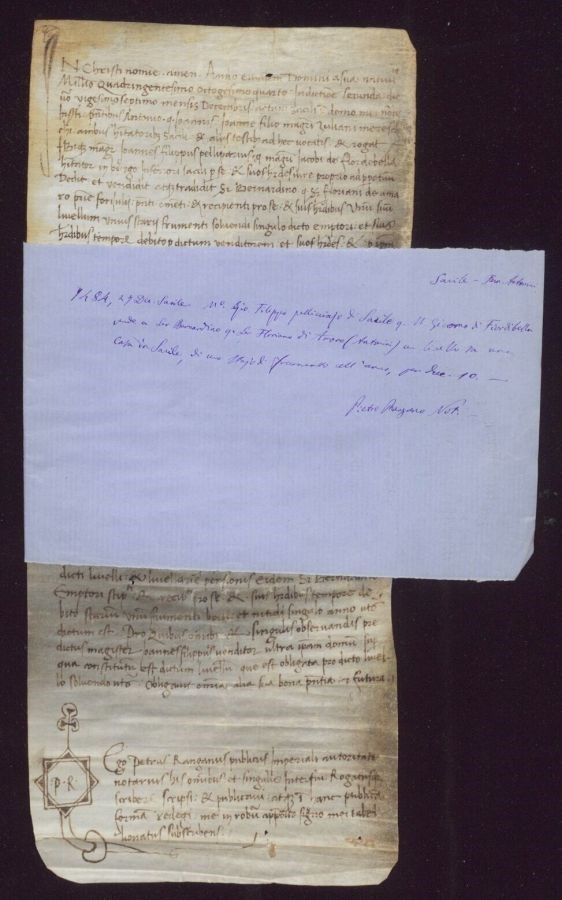 N Christi nomine amen. Anno eiusdem Domini a sua nativi
Mill'io Quadringentesimo octogesimoquarto Indictione secunda die
vigesimoseptimo mensis Decembris
p̃ntibus Antonio q. Joannis Joanne filio magri Zuliani
ħitatorib Sacili & aliis testib ad hoc vocatis & rogat
magr Joannes filippus pelliparius q magri Jacobi de floradebella
ħitator in burgo Inferiori Sacili p se & suos ħrdes iure proprio
Dedit et vendidit atq tradidit Sr Bernardino q Sr floriani de ama
ro p̃nte & recipienti pro se & suis ħrdibus Unum
livellum unius starii frumenti solvendi singulo dicto emptori et suis
ħrdibus tempore debito p dictum venditorem et suos ħrdes &
Sacile - 
1484, 27 Dec Sacile Mo. Gio Filippo pellicciajo di Sacile q. M Giacomo di Fiordibella
vende a Ser Bernardino qu. Ser Floriano di un livello su una
casa in Sacile, di uno stajo di frumento all'anno, per duc. 10. —
Pietro Rangano Not.
dicti livelli personis eidem Sr Bernardino
Emptori pro se & suis ħrdibus tempore de
bito starium unum frumenti boni et nitidi singulo anno
dictum est. Pro Quibus omnibus & singulis observandis pre
dictus magister Joannesfilippus venditor ultra ipam domum
qua constitutum est dictum livellum que est obligata pro dicto livel
lo solvendo Obligavit omnia alia sua bona p̃ntia & futura.
P · R
Ego Petrus Ranganus publicus Imperiali autoritate
notarius his omnibus et singulis Interfui Rogatusq
scribere scripsi & publicavi atq I hanc publica
forma redegi me in robur apposito signo mei tabel
lionatus subscribens.